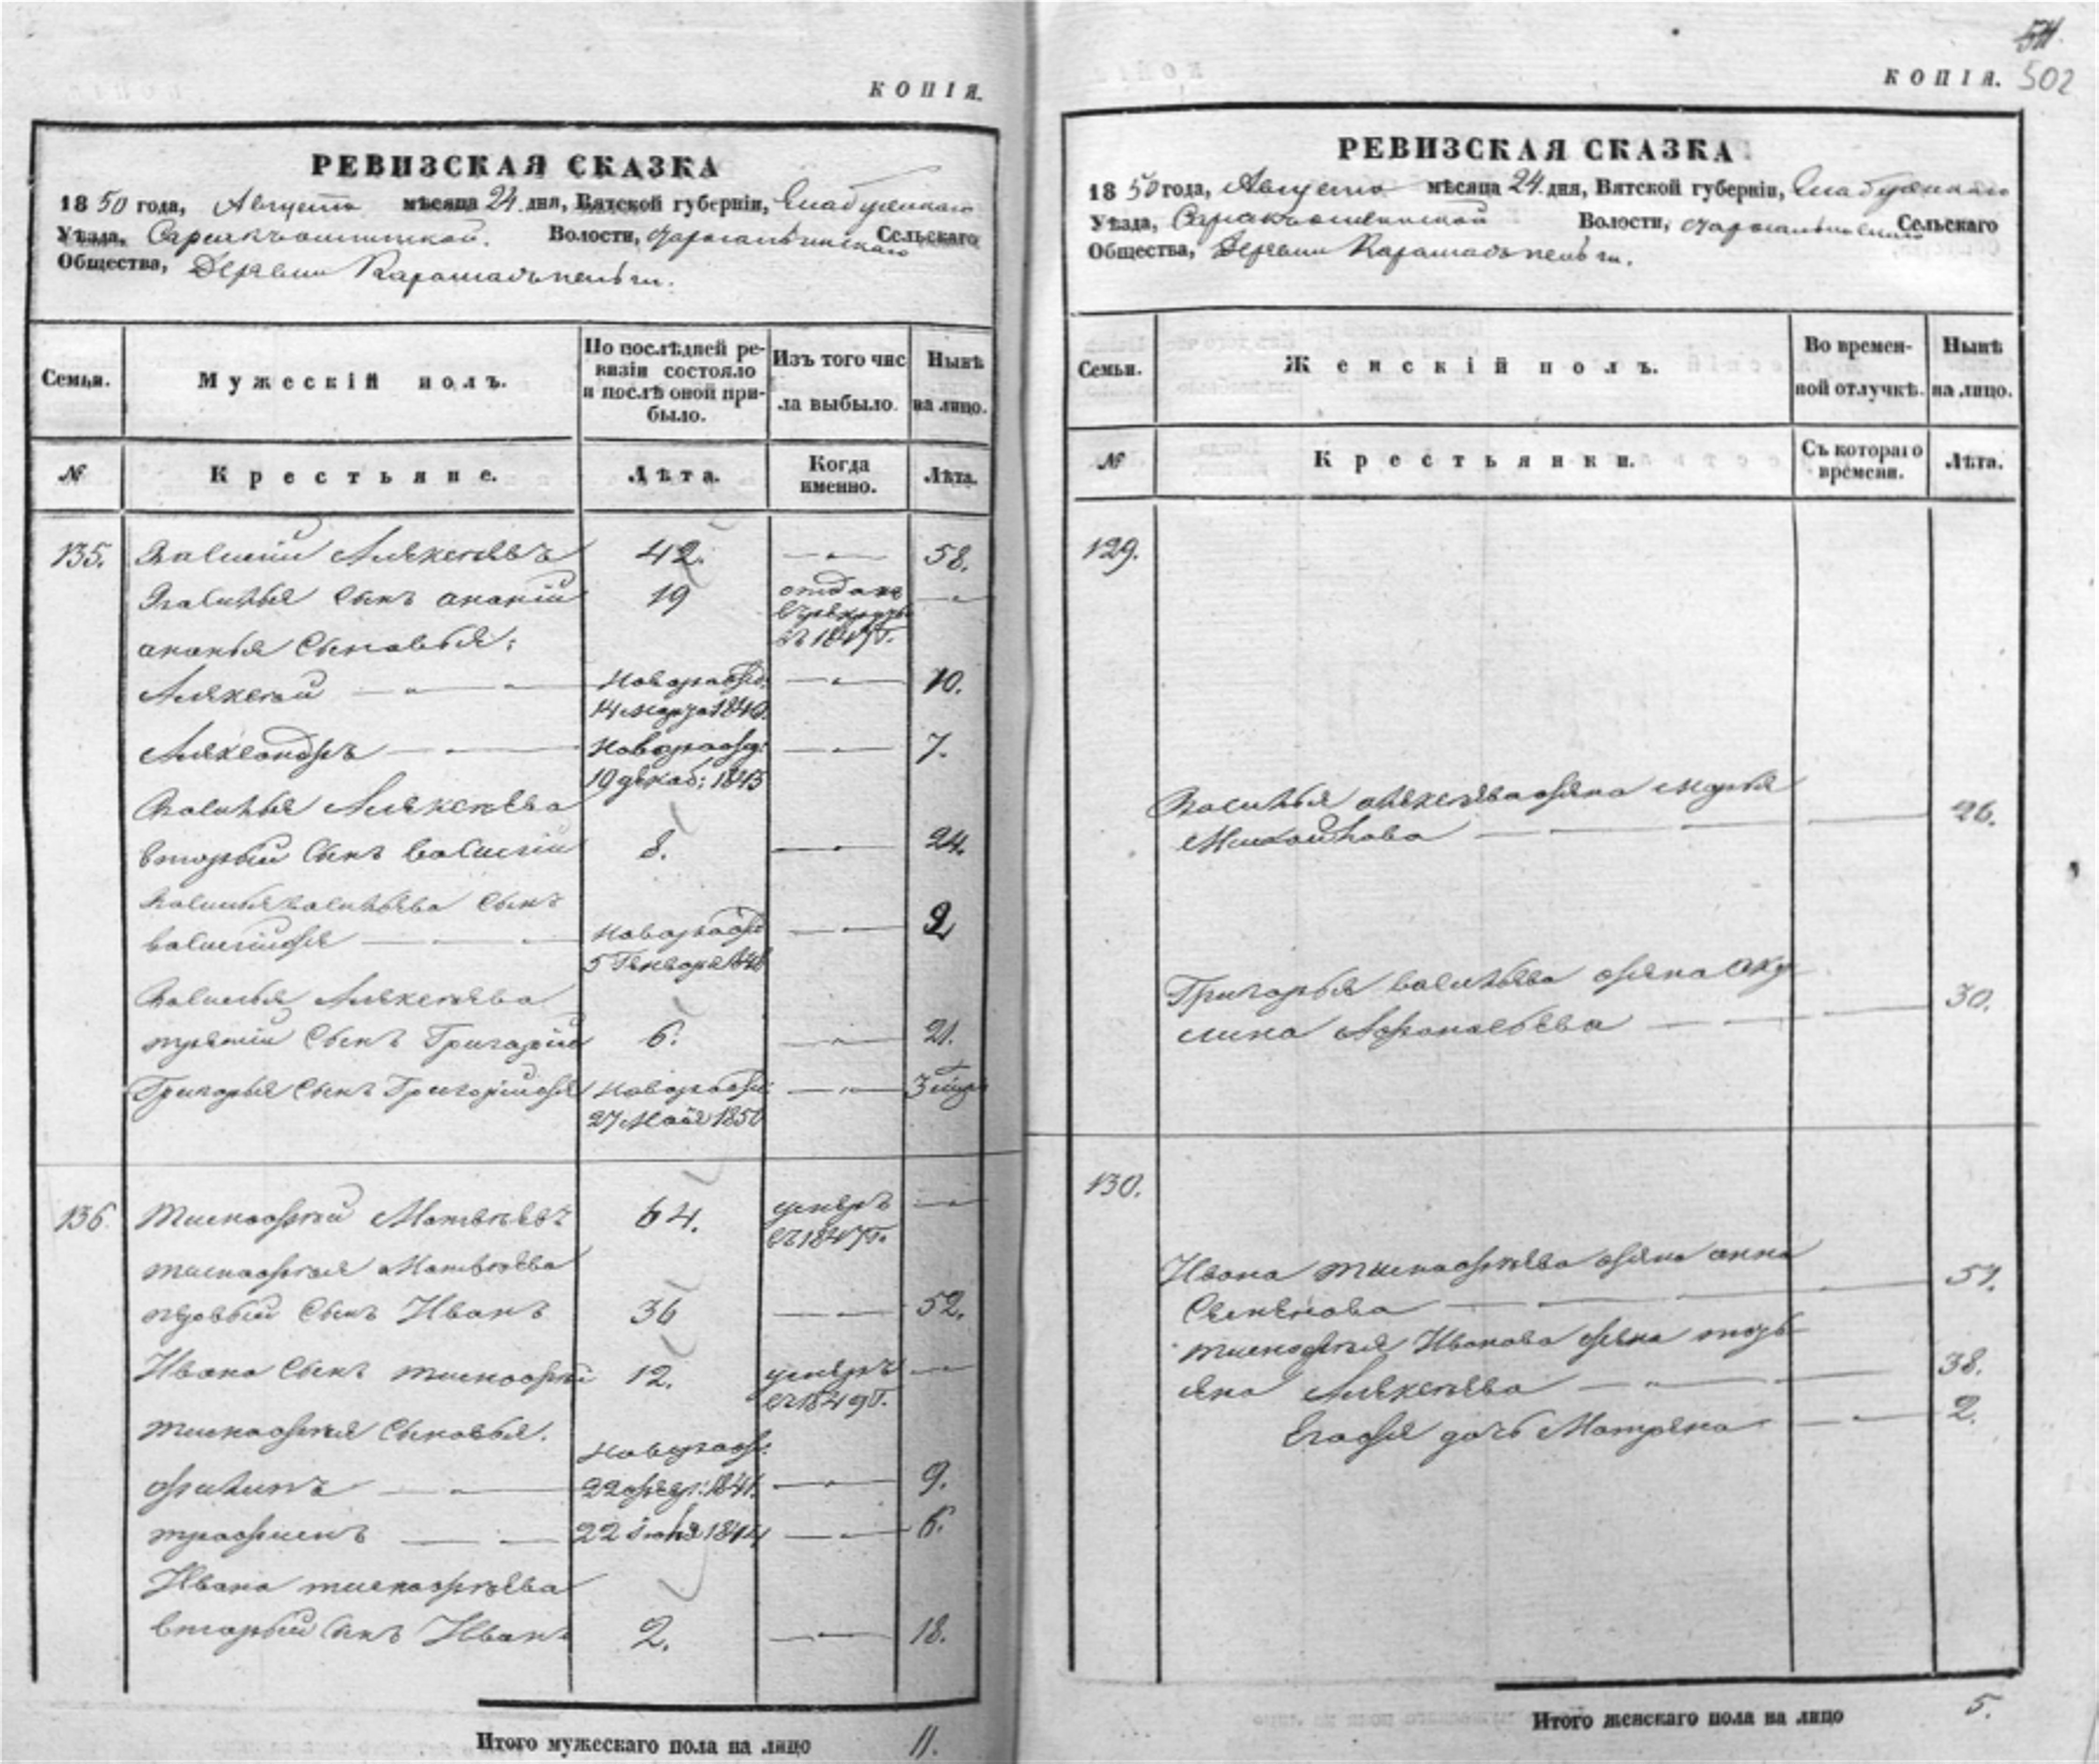 КОПІЯ.
РЕВИЗСКАЯ СКАЗКА
1850 года, Августа мѣсяца 24 дня, Вятской губерніи, Елабужскаго
Уѣзда, Волости, Сельскаго
Общества, Деревни
Семьи.
Мужескій полъ.
По послѣдней ре-
визіи состояло
и послѣ оной при-
было.
Изъ того чис
ла выбыло.
Нынѣ
на лицо.
№
Крестьяне.
Лѣта.
Когда
именно.
Лѣта.
135. Василій Алексѣевъ 42. 58.
Василья сынъ ананій 19 отдан
в рекруты
въ 1847 г.
ананья сыновья:
Алексей новорожд: 10.
14 марта 1840.
Александръ новорожд: 7.
19 декаб: 1843
Василья Алексѣева
вторый сынъ василій 8. 24.
Василья васильева сынъ
новорожд 2
5 Генваря 1848
Василья Алексѣева
третій сынъ Григорій 6. 21.
Григорья сынъ новорожд: 3
27 Маія 1850
136. Тимофей Матвѣевъ 64. умеръ
въ 1847 г.
тимофея Матвѣева
первый сынъ Иванъ 36 52.
Ивана сынъ тимофей 12. умеръ
въ 1849 г.
тимофея сыновья:
новорожд:
филипъ 22 февр: 1841. 9.
трофимъ 22 1844 6.
Ивана тимофѣева
вторый сынъ Иванъ 2. 18.
Итого мужескаго пола на лицо 11.
54.
КОПІЯ. 502
РЕВИЗСКАЯ СКАЗКА
1850 года, Августа мѣсяца 24 дня, Вятской губерніи, Елабужскаго
Уѣзда, Волости, Сельскаго
Общества, Деревни
Семьи.
Женскій полъ.
Во времен-
ной отлучкѣ.
Нынѣ
на лицо.
№
Крестьянки.
Съ котораго
времени.
Лѣта.
129.
Василья алексѣева жена марья
Михайлова 26.
Григорья васильева жена аку
лина Афонасьева 30.
130.
Ивана тимофѣева жена анна
Семенова 51.
тимофея Иванова жена
Алексѣева 38.
дочь Матрена 2.
Итого женскаго пола на лицо 5.